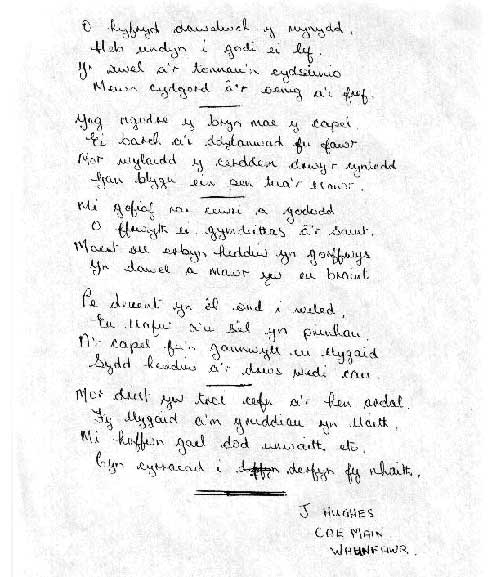 O hyfryd dawelwch y mynydd,
Heb undyn i godi ei lef
Yr awel a'r tonnau'n cydseinio
Mewn cydgord â'r
Yng nghodre y bryn mae y capel
Ei barch a'i ddylanwad fu fawr
Mor wylaidd y cerddem drwy'r cyntedd
Gan blygu ein pen tua'r llawr.
Mi gofiaf rai cewri a gododd
O ffrwyth ei gymdeithas â'r saint,
Maent oll erbyn heddiw yn gorffwys
Yn dawel a mawr yw eu braint
Pe deuent yn ôl ond i weled,
Eu llafur a'u sêl yn prinhau
A'r capel fu'n gannwyll eu llygaid
Sydd heddiw a'r drws wedi cau
Mor drist yw troi cefn a'r hen ardal.
Fy llygaid a'm gruddiau yn llaith,
Mi hoffwn gael dod unwaith eto
Cyn cyrraedd i derfyn fy nhaith.
J HUGHES
COE MAIN
WAENFAWR.